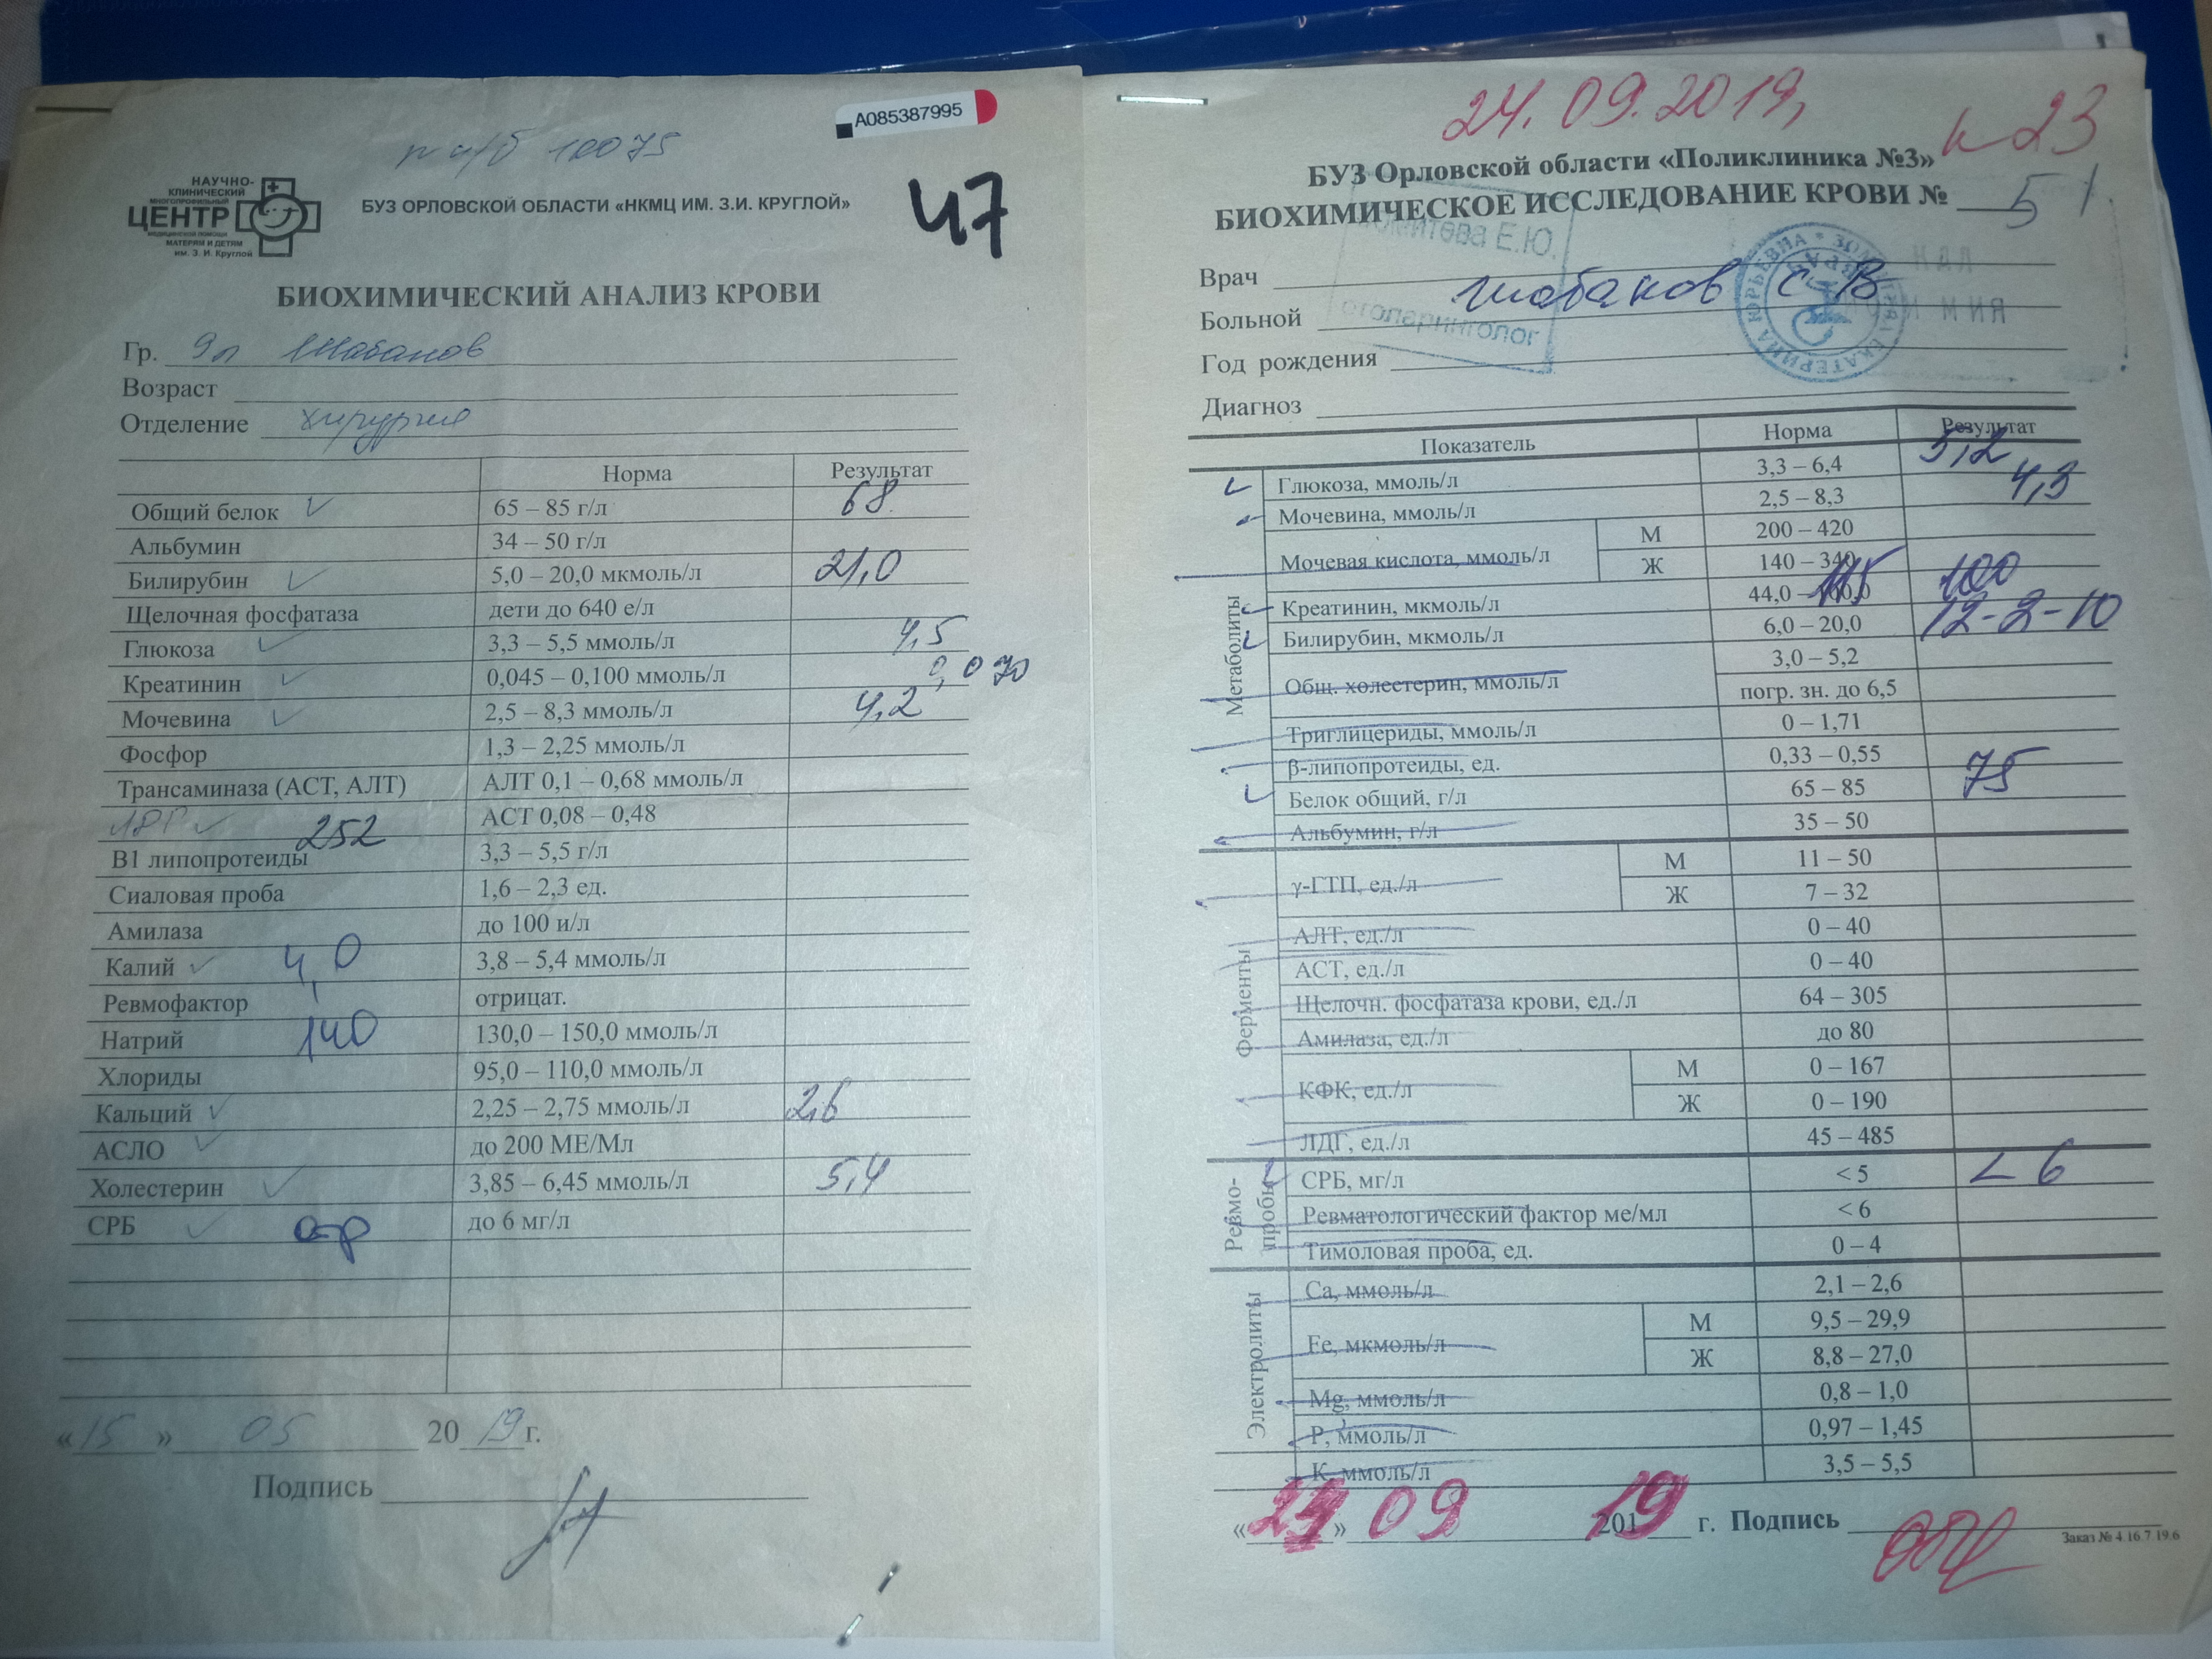 А085387995
п и/б 10075
НАУЧНО-
КЛИНИЧЕСКИЙ
МНОГОПРОФИЛЬНЫЙ
ЦЕНТР
МЕДИЦИНСКОЙ ПОМОЩИ
МАТЕРЯМ И ДЕТЯМ
им. З. И. Круглой
БУЗ ОРЛОВСКОЙ ОБЛАСТИ «НКМЦ ИМ. З.И. КРУГЛОЙ»
47
БИОХИМИЧЕСКИЙ АНАЛИЗ КРОВИ
Гр. 9л Шабанов
Возраст
Отделение хирургия
Норма Результат
Общий белок 65 – 85 г/л 68
Альбумин 34 – 50 г/л
Билирубин 5,0 – 20,0 мкмоль/л 21,0
Щелочная фосфатаза дети до 640 е/л
Глюкоза 3,3 – 5,5 ммоль/л 4,5
Креатинин 0,045 – 0,100 ммоль/л 0,070
Мочевина 2,5 – 8,3 ммоль/л 4,2
Фосфор 1,3 – 2,25 ммоль/л
Трансаминаза (АСТ, АЛТ) АЛТ 0,1 – 0,68 ммоль/л
252 АСТ 0,08 – 0,48
В1 липопротеиды 3,3 – 5,5 г/л
Сиаловая проба 1,6 – 2,3 ед.
Амилаза до 100 и/л
Калий 4,0 3,8 – 5,4 ммоль/л
Ревмофактор отрицат.
Натрий 140 130,0 – 150,0 ммоль/л
Хлориды 95,0 – 110,0 ммоль/л
Кальций 2,25 – 2,75 ммоль/л 2,6
АСЛО до 200 МЕ/Мл
Холестерин 3,85 – 6,45 ммоль/л 5,4
СРБ отр до 6 мг/л
«15» 05 2019г.
Подпись
24.09.2019,
к 23
БУЗ Орловской области «Поликлиника №3»
БИОХИМИЧЕСКОЕ ИССЛЕДОВАНИЕ КРОВИ № 51
Е.Ю.
Врач
Больной Шабанов С В
Год рождения
Диагноз
Показатель Норма Результат
Метаболиты
Глюкоза, ммоль/л 3,3 – 6,4 5,2
Мочевина, ммоль/л 2,5 – 8,3 4,3
Мочевая кислота, ммоль/л М 200 – 420
Ж 140 – 340
Креатинин, мкмоль/л 44,0 – 115 100
Билирубин, мкмоль/л 6,0 – 20,0 12-2-10
Общ. холестерин, ммоль/л 3,0 – 5,2
погр. зн. до 6,5
Триглицериды, ммоль/л 0 – 1,71
β-липопротеиды, ед. 0,33 – 0,55
Белок общий, г/л 65 – 85 75
Альбумин, г/л 35 – 50
Ферменты
γ-ГТП, ед./л М 11 – 50
Ж 7 – 32
АЛТ, ед./л 0 – 40
АСТ, ед./л 0 – 40
Щелочн. фосфатаза крови, ед./л 64 – 305
Амилаза, ед./л до 80
КФК, ед./л М 0 – 167
Ж 0 – 190
ЛДГ, ед./л 45 – 485
Ревмо-
пробы
СРБ, мг/л < 5 < 6
Ревматологический фактор ме/мл < 6
Тимоловая проба, ед. 0 – 4
Электролиты
Ca, ммоль/л 2,1 – 2,6
Fe, мкмоль/л М 9,5 – 29,9
Ж 8,8 – 27,0
Mg, ммоль/л 0,8 – 1,0
P, ммоль/л 0,97 – 1,45
К, ммоль/л 3,5 – 5,5
«24» 09 2019 г. Подпись
Заказ № 4.16.7.19.6